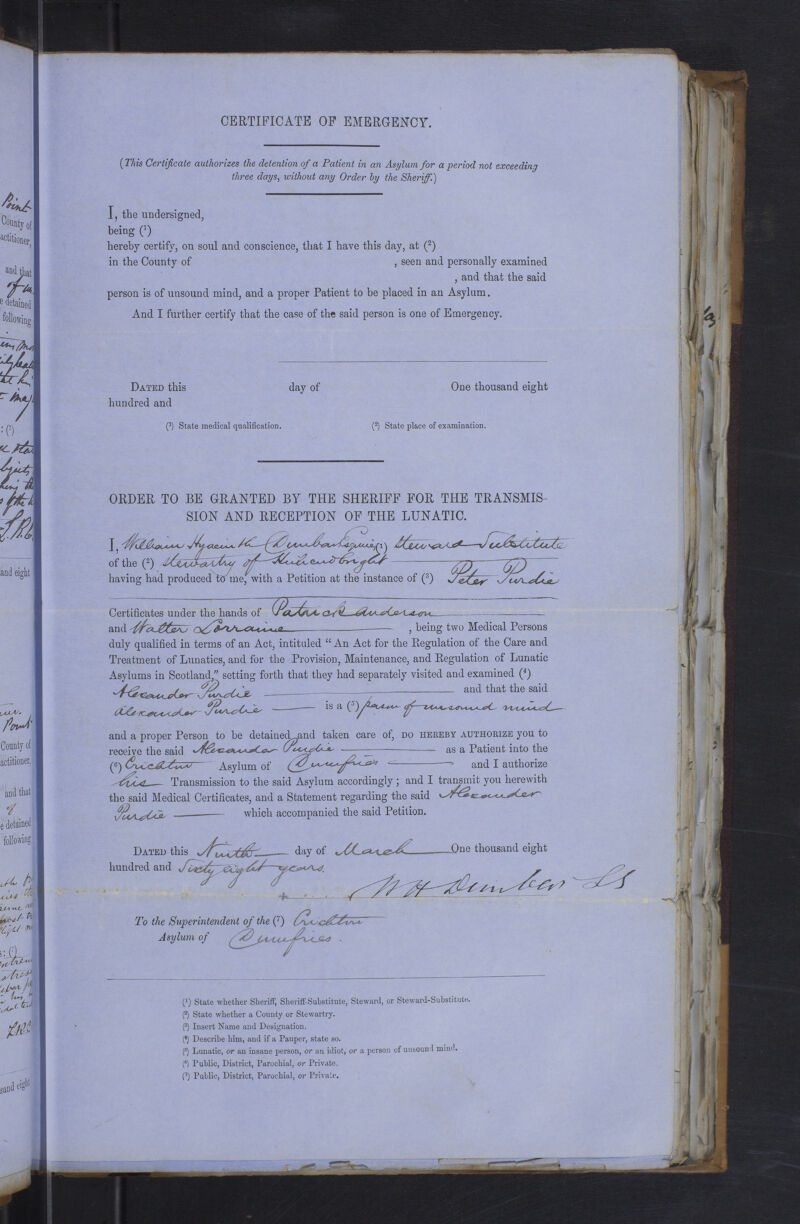 CERTIFICATE OF EMERGENCY.
(This Certificate authorizes the detention of a Patient in an Asylum for a period not exceeding
three days, without any Order by the Sheriff.)
I, the undersigned,
being (¹)
hereby certify, on soul and conscience, that I have this day, at (²)
in the County of , seen and personally examined
, and that the said
person is of unsound mind, and a proper Patient to be placed in an Asylum.
And I further certify that the case of the said person is one of Emergency.
DATED this day of One thousand eight
hundred and
(¹) State medical qualification. (²) State place of examination.
ORDER TO BE GRANTED BY THE SHERIFF FOR THE TRANSMIS-
SION AND RECEPTION OF THE LUNATIC.
I, William Hyacinth Dunbar Esquire (¹) Steward Substitute
of the (²) Stewartry of Kirkcudbright
having had produced to me, with a Petition at the instance of (³) Peter Purdie
Certificates under the hands of Patrick Anderson
and Walter Lorraine , being two Medical Persons
duly qualified in terms of an Act, intituled "An Act for the Regulation of the Care and
Treatment of Lunatics, and for the Provision, Maintenance, and Regulation of Lunatic
Asylums in Scotland," setting forth that they had separately visited and examined (⁴)
Alexander Purdie and that the said
Alexander Purdie is a (⁵) person of unsound mind
and a proper Person to be detained and taken care of, DO HEREBY AUTHORIZE you to
receive the said Alexander Purdie as a Patient into the
(⁶) Crichton Asylum of Dumfries and I authorize
his Transmission to the said Asylum accordingly; and I transmit you herewith
the said Medical Certificates, and a Statement regarding the said Alexander
Purdie which accompanied the said Petition.
DATED this Ninth day of March One thousand eight
hundred and Sixty eight years.
W H Dunbar SS
To the Superintendent of the (⁷) Crichton
Asylum of Dumfries.
(¹) State whether Sheriff, Sheriff-Substitute, Steward, or Steward-Substitute.
(²) State whether a County or Stewartry.
(³) Insert Name and Designation.
(⁴) Describe him, and if a Pauper, state so.
(⁵) Lunatic, or an insane person, or an idiot, or a person of unsound mind.
(⁶) Public, District, Parochial, or Private.
(⁷) Public, District, Parochial, or Private.